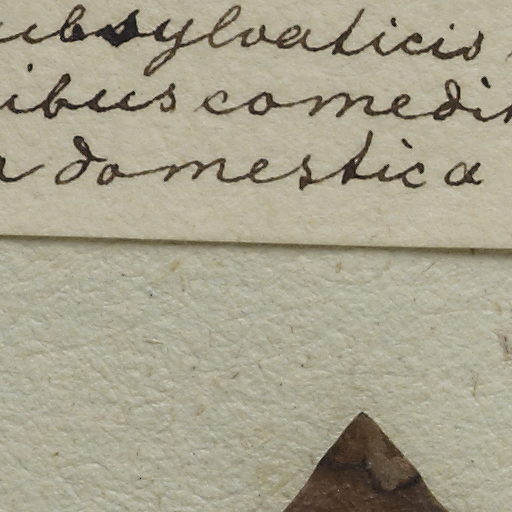 subsylvaticis
ibus comedi
domestica